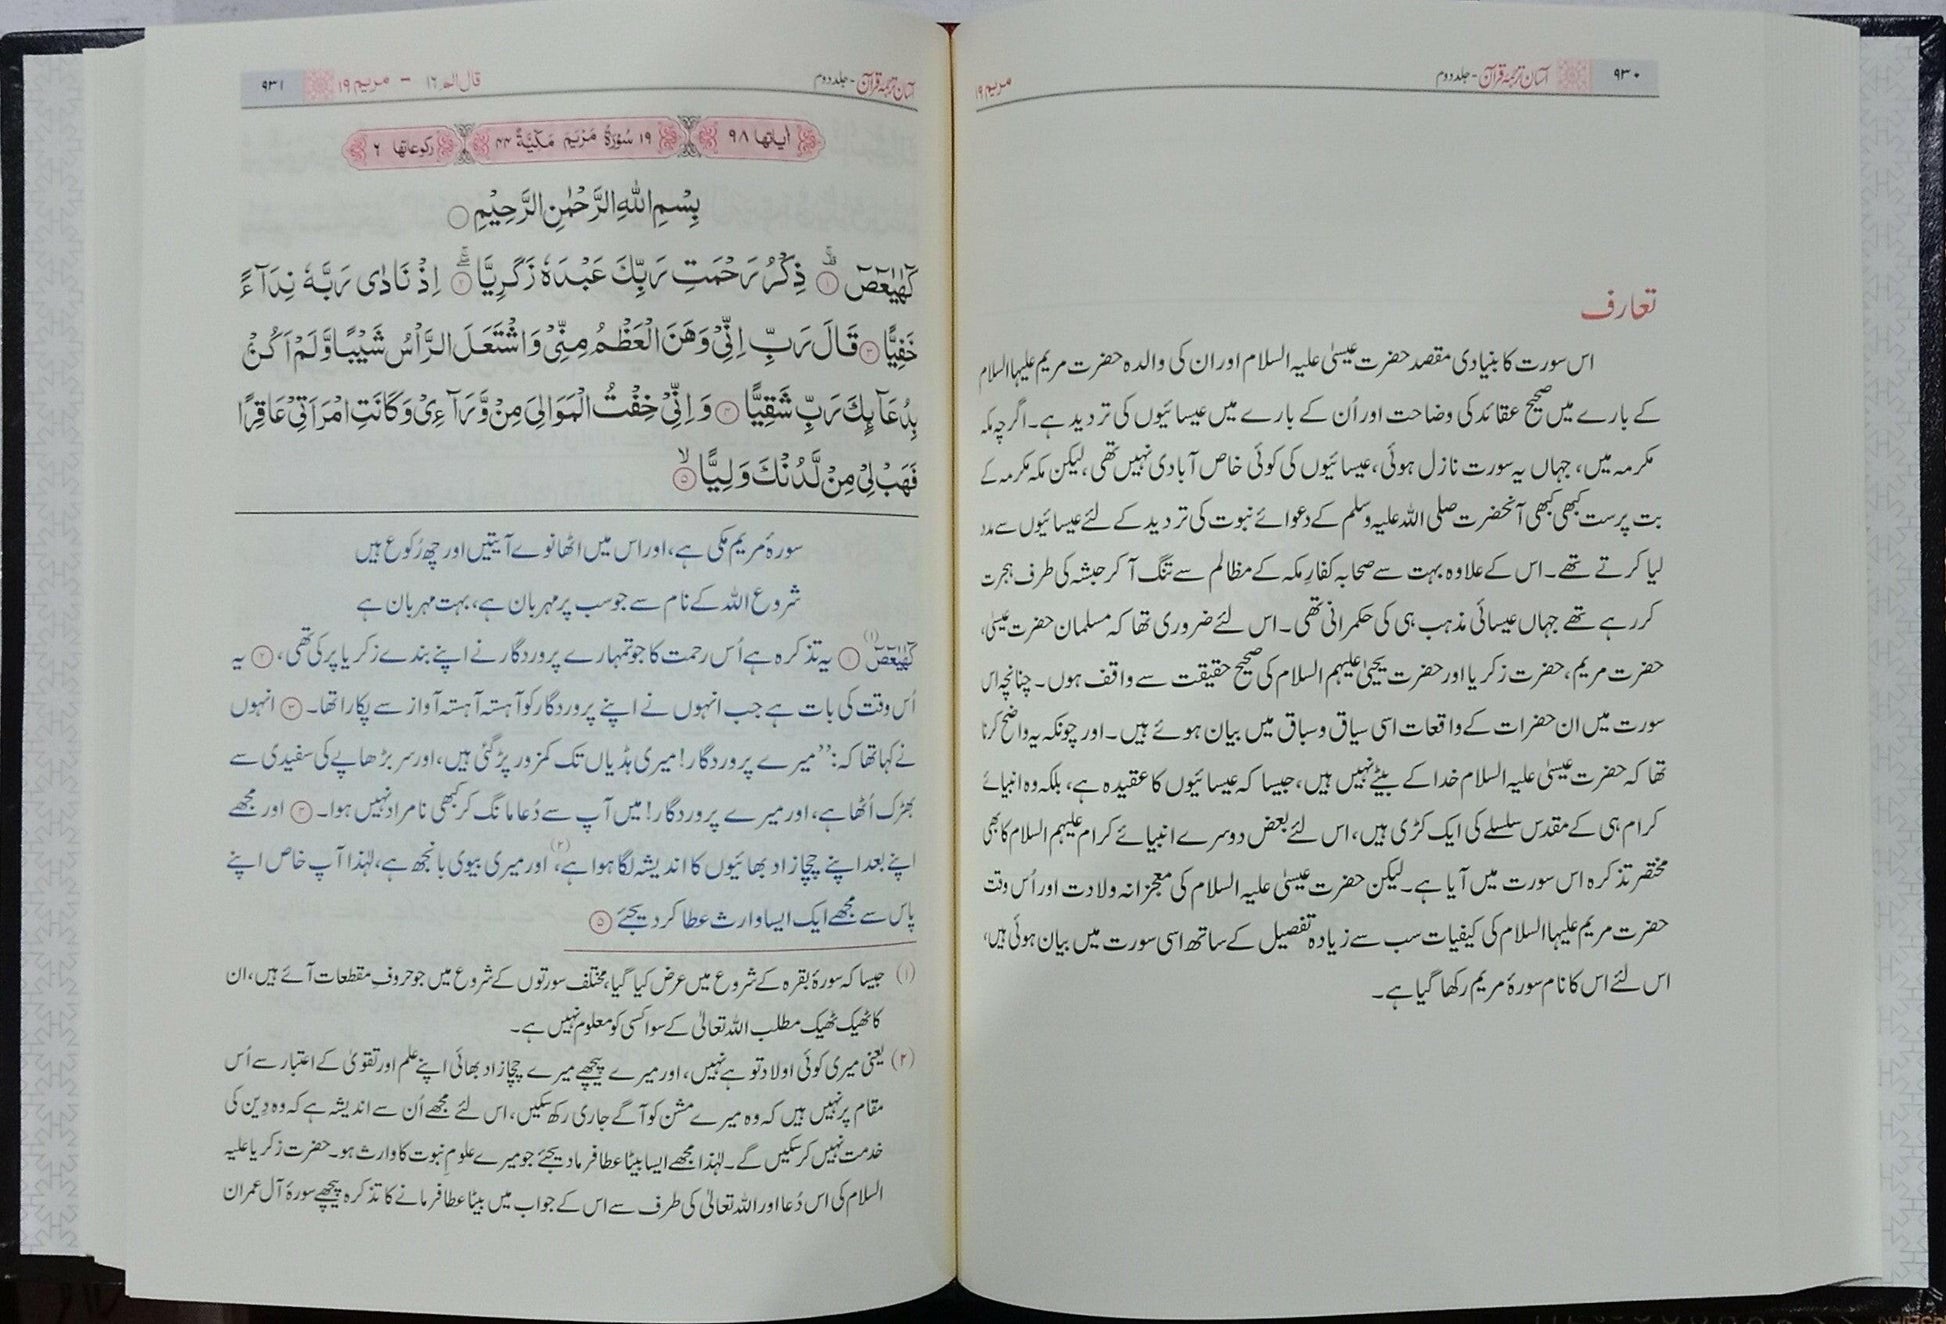 ۹۳۰ آسان ترجمۂ قرآن - جلد دوم مریم ۱۹
تعارف
اس سورت کا بنیادی مقصد حضرت عیسیٰ علیہ السلام اور ان کی والدہ حضرت مریم علیہا السلام
کے بارے میں صحیح عقائد کی وضاحت اور اُن کے بارے میں عیسائیوں کی تردید ہے۔ اگرچہ مکہ
مکرمہ میں، جہاں یہ سورت نازل ہوئی، عیسائیوں کی کوئی خاص آبادی نہیں تھی، لیکن مکہ مکرمہ کے
بت پرست کبھی کبھی آنحضرت صلی اللہ علیہ وسلم کے دعوائے نبوت کی تردید کے لئے عیسائیوں سے مدد
لیا کرتے تھے۔ اس کے علاوہ بہت سے صحابہ کفارِ مکہ کے مظالم سے تنگ آ کر حبشہ کی طرف ہجرت
کر رہے تھے جہاں عیسائی مذہب ہی کی حکمرانی تھی۔ اس لئے ضروری تھا کہ مسلمان حضرت عیسیٰ،
حضرت مریم، حضرت زکریا اور حضرت یحییٰ علیہم السلام کی صحیح حقیقت سے واقف ہوں۔ چنانچہ اس
سورت میں ان حضرات کے واقعات اسی سیاق و سباق میں بیان ہوئے ہیں۔ اور چونکہ یہ واضح کرنا
تھا کہ حضرت عیسیٰ علیہ السلام خدا کے بیٹے نہیں ہیں، جیسا کہ عیسائیوں کا عقیدہ ہے، بلکہ وہ انبیائے
کرام ہی کے مقدس سلسلے کی ایک کڑی ہیں، اس لئے بعض دوسرے انبیائے کرام علیہم السلام کا بھی
مختصر تذکرہ اس سورت میں آیا ہے۔ لیکن حضرت عیسیٰ علیہ السلام کی معجزانہ ولادت اور اُس وقت
حضرت مریم علیہا السلام کی کیفیات سب سے زیادہ تفصیل کے ساتھ اسی سورت میں بیان ہوئی ہیں،
اس لئے اس کا نام سورۂ مریم رکھا گیا ہے۔
آسان ترجمۂ قرآن - جلد دوم قال الم ۱۶ - مریم ۱۹ ۹۳۱
اٰیاتھا ۹۸ ۱۹ سُوۡرَةُ مَرۡیَمَ مَکِّیَّةٌ ۴۴ رکوعاتھا ۶
بِسۡمِ اللّٰهِ الرَّحۡمٰنِ الرَّحِيۡمِ
كٓهٰيٰعٓصٓ ۚ‏ ﴿۱﴾ ذِكۡرُ رَحۡمَتِ رَبِّكَ عَـبۡدَهٗ زَكَرِيَّا ۖۚ ﴿۲﴾ اِذۡ نَادٰى رَبَّهٗ نِدَآءً
خَفِيًّا ﴿۳﴾ قَالَ رَبِّ اِنِّىۡ وَهَنَ الۡعَظۡمُ مِنِّىۡ وَاشۡتَعَلَ الرَّاۡسُ شَيۡبًا وَّلَمۡ اَكُنۡۢ
بِدُعَآٮِٕكَ رَبِّ شَقِيًّا ﴿۴﴾ وَاِنِّىۡ خِفۡتُ الۡمَوَالِىَ مِنۡ وَّرَآءِىۡ وَكَانَتِ امۡرَاَتِىۡ عَاقِرًا
فَهَبۡ لِىۡ مِنۡ لَّدُنۡكَ وَلِيًّا ۙ ﴿۵﴾
سورۂ مریم مکی ہے، اور اس میں اٹھانوے آیتیں اور چھ رُکوع ہیں
شروع اللہ کے نام سے جو سب پر مہربان ہے، بہت مہربان ہے
كٓهٰيٰعٓصٓ (۱) ﴿۱﴾ یہ تذکرہ ہے اُس رحمت کا جو تمہارے پروردگار نے اپنے بندے زکریا پر کی تھی، ﴿۲﴾ یہ
اُس وقت کی بات ہے جب انہوں نے اپنے پروردگار کو آہستہ آہستہ آواز سے پکارا تھا۔ ﴿۳﴾ انہوں
نے کہا تھا کہ: ”میرے پروردگار! میری ہڈیاں تک کمزور پڑ گئی ہیں، اور سر بڑھاپے کی سفیدی سے
بھڑک اُٹھا ہے، اور میرے پروردگار! میں آپ سے دُعا مانگ کر کبھی نامراد نہیں ہوا۔ ﴿۴﴾ اور مجھے
اپنے بعد اپنے چچا زاد بھائیوں کا اندیشہ لگا ہوا ہے، (۲) اور میری بیوی بانجھ ہے، لہٰذا آپ خاص اپنے
پاس سے مجھے ایک ایسا وارث عطا کر دیجئے ﴿۵﴾
(۱) جیسا کہ سورۂ بقرہ کے شروع میں عرض کیا گیا، مختلف سورتوں کے شروع میں جو حروفِ مقطعات آئے ہیں، ان
کا ٹھیک ٹھیک مطلب اللہ تعالیٰ کے سوا کسی کو معلوم نہیں ہے۔
(۲) یعنی میری کوئی اولاد تو ہے نہیں، اور میرے پیچھے میرے چچا زاد بھائی اپنے علم اور تقویٰ کے اعتبار سے اُس
مقام پر نہیں ہیں کہ وہ میرے مشن کو آگے جاری رکھ سکیں، اس لئے مجھے اُن سے اندیشہ ہے کہ وہ دِین کی
خدمت نہیں کر سکیں گے۔ لہٰذا مجھے ایسا بیٹا عطا فرما دیجئے جو میرے علومِ نبوت کا وارث ہو۔ حضرت زکریا علیہ
السلام کی اس دُعا اور اللہ تعالیٰ کی طرف سے اس کے جواب میں بیٹا عطا فرمانے کا تذکرہ پیچھے سورۂ آل عمران